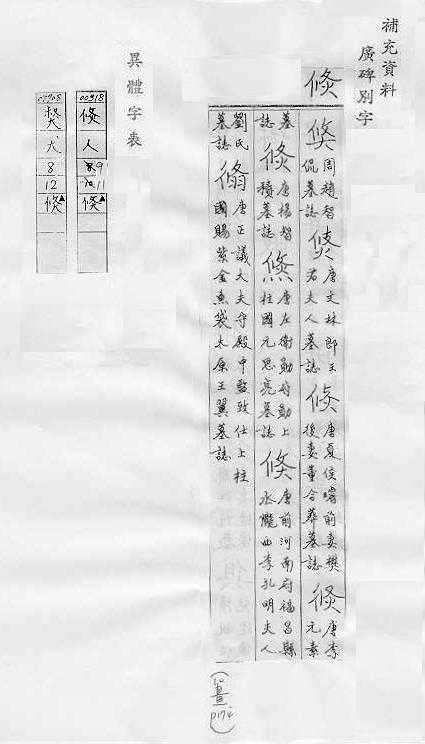 補充資料
廣碑別字
倏
周趙智侃墓誌
唐文林郎王君夫人墓誌
倏
唐夏侯
前妻樊後妻董合葬墓誌
倏
唐李元素墓誌
倏
唐楊智積墓誌
唐左衛勳府勳上柱國元思亮墓誌
倏
唐前河南府福昌縣丞隴西李孔明夫人劉氏墓誌
唐正議大夫守殿中監致仕上柱國賜紫金魚袋太原王翼墓誌
異體字表
00318
倏
人
9
11
倏
犬
8
12
倏